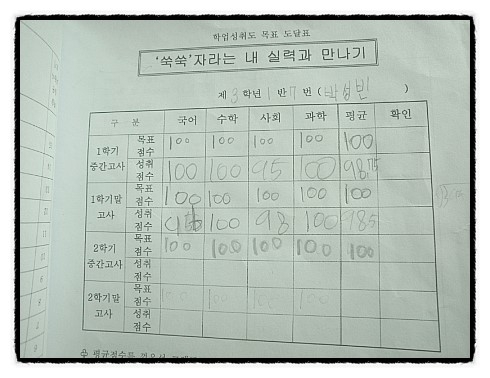 학업성취도 목표 도달표
'쑥쑥'자라는 내 실력과 만나기
제 3 학년 1 반 7 번 (박성빈)
구 분 국어 수학 사회 과학 평균 확인
1학기 중간고사 목표 점수 100 100 100 100 100
성취 점수 100 100 95 100 98.75
1학기말 고사 목표 점수 100 100 100 100 100
성취 점수 100 98 100 98.5
2학기 중간고사 목표 점수 100 100 100 100 100
성취 점수
2학기말 고사 목표 점수 100 100 100 100
성취 점수